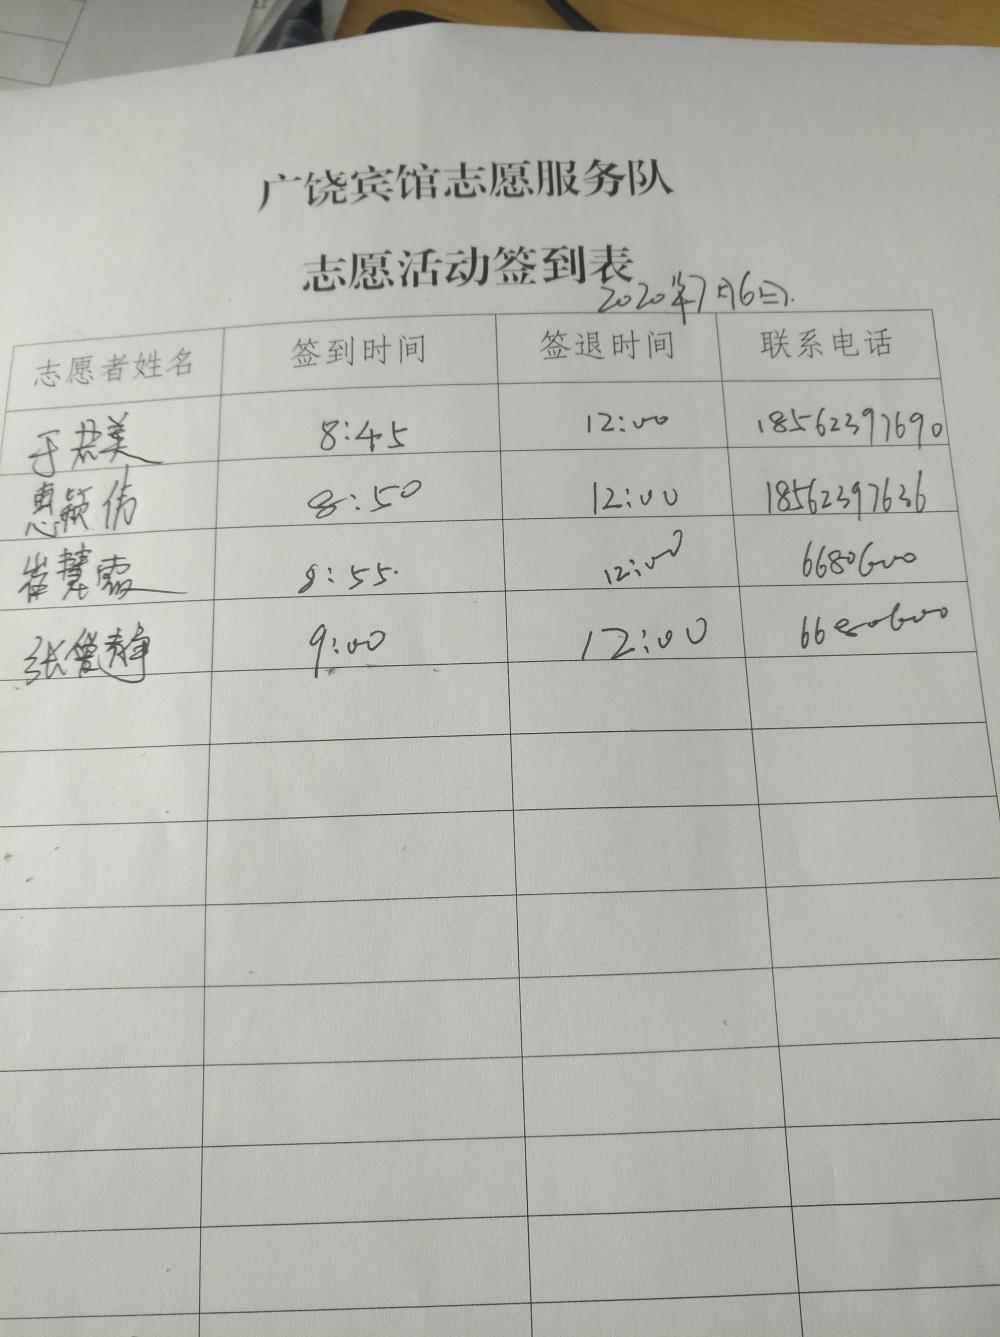 广饶宾馆志愿服务队
志愿活动签到表
2020年7月6日.
志愿者姓名 签到时间 签退时间 联系电话
于君美 8:45 12:00 18562397690
惠颖伟 8:50 12:00 18562397636
崔慧霞 8:55. 12:00 6680600
张 静 9:00 12:00 6680600